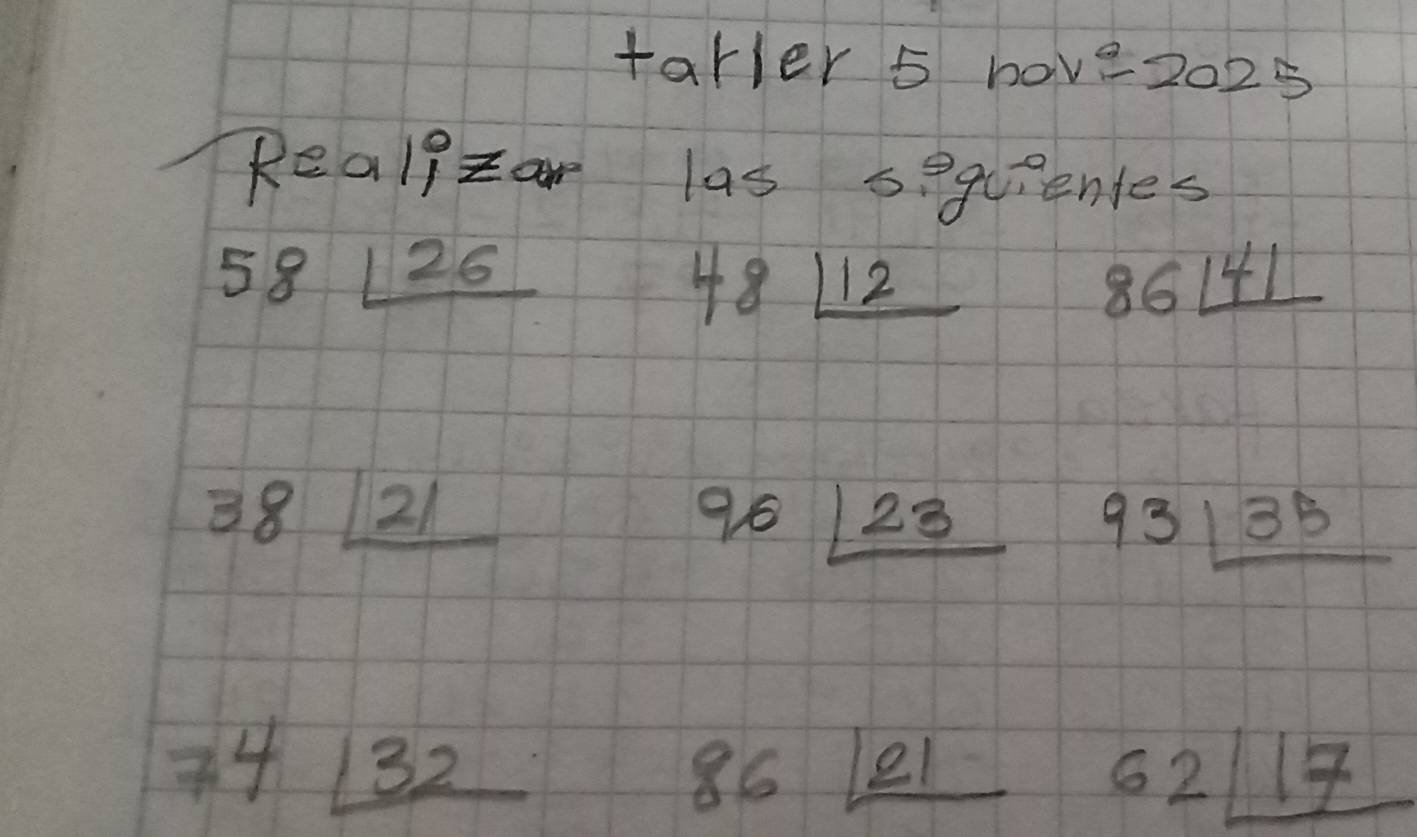 tarler 5 nov-2025
Realizar las siguientes
58 26 48 12 86 41
38 21 96 23 93 35
74 32 86 21 62 17